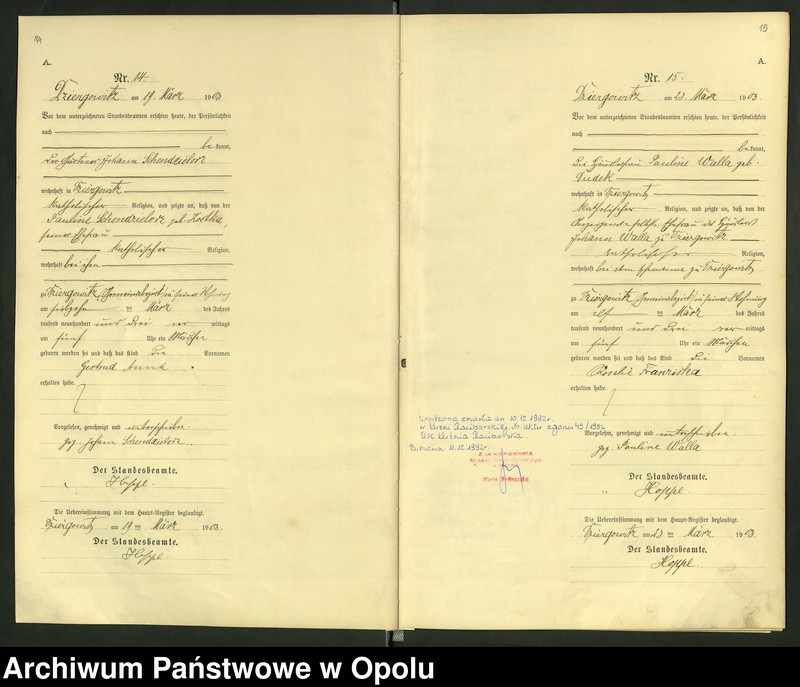 14
A.
Nr. 14
Dziergowitz am 19. März 1903
Vor dem unterzeichneten Standesbeamten erschien heute, der Persönlichkeit
nach
be kannt,
der Gärtner Johann Schendzielorz
wohnhaft in Dziergowitz
katholischer Religion, und zeigte an, daß von der
Pauline Schendzielorz geb. Kostka,
seiner Ehefrau
katholischer Religion,
wohnhaft bei ihm
zu Dziergowitz (Gemeindebezirk) in seiner Wohnung
am siebzehn ten März des Jahres
tausend neunhundert und drei vor mittags
um fünf Uhr ein Mädchen
geboren worden sei und daß das Kind die Vornamen
Gertrud Anna
erhalten habe.
Vorgelesen, genehmigt und unterschrieben
gez. Johann Schendzielorz
Der Standesbeamte.
Hoppe.
Die Uebereinstimmung mit dem Haupt-Register beglaubigt.
Dziergowitz am 19 ten März 1903.
Der Standesbeamte.
Hoppe.
15
A.
Nr. 15.
Dziergowitz am 23. März 1903.
Vor dem unterzeichneten Standesbeamten erschien heute, der Persönlichkeit
nach
be kannt,
Die Häuslerfrau Pauline Walla geb.
Dudek
wohnhaft in Dziergowitz
katholischer Religion, und zeigte an, daß von der
Ehefrau des Häuslers
Johann Walla zu Dziergowitz
katholischer Religion,
wohnhaft bei dem Ehemanne zu Dziergowitz
zu Dziergowitz Gemeindebezirk in seiner Wohnung
am elf ten März des Jahres
tausend neunhundert und drei vor mittags
um fünf Uhr ein Mädchen
geboren worden sei und daß das Kind die Vornamen
Franziska
erhalten habe.
Vorgelesen, genehmigt und unterschrieben
gez. Pauline Walla
Der Standesbeamte.
Hoppe.
Die Uebereinstimmung mit dem Haupt-Register beglaubigt.
Dziergowitz am 23 ten März 1903
Der Standesbeamte.
Hoppe.
Urodzona zmarła dn. 10.12.1992r.
w Kuźni Raciborskiej Nr aktu zgonu 49/1992
USC Kuźnia Raciborska.
Bierawa 11.12.1992r.
Z-CA KIEROWNIKA
Maria
Archiwum Państwowe w Opolu